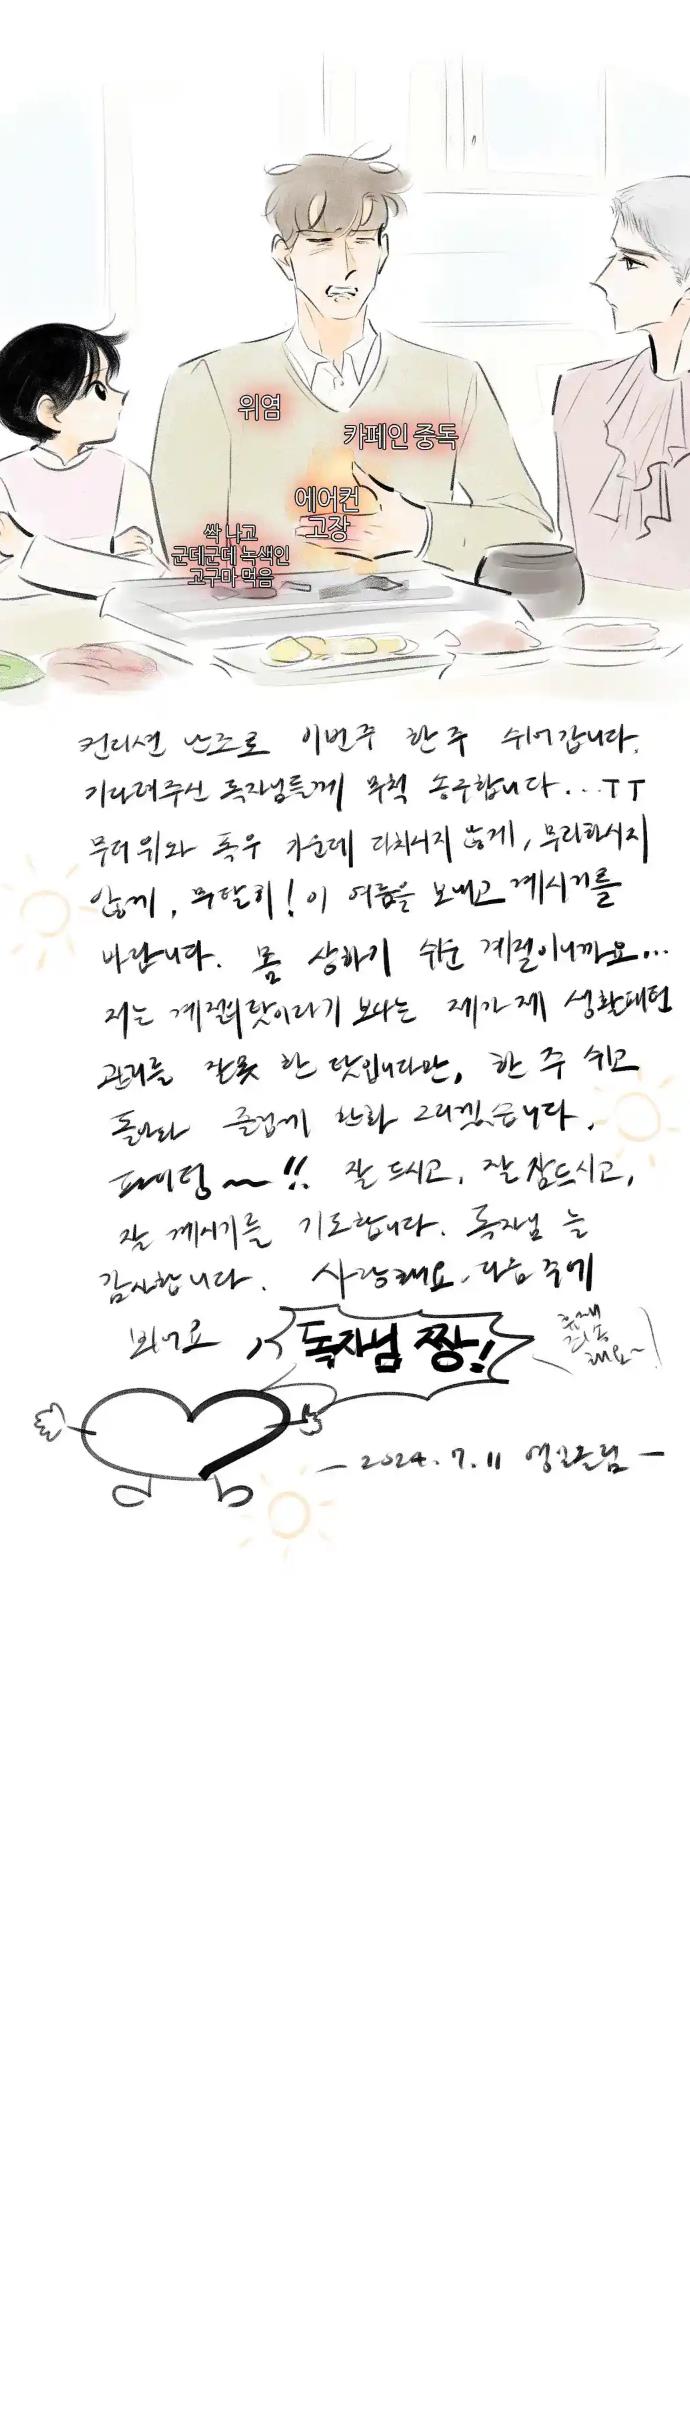 위염
카페인 중독
에어컨
고장
싹 나고
군데군데 녹색인
고구마 먹음
컨디션 난조로 이번주 한 주 쉬어갑니다.
기다려주신 독자님들께 무척 송구합니다...TT
무더위와 폭우 가운데 다치시지 않게, 무리하시지
않게, 무탈히! 이 여름을 보내고 계시기를
바랍니다. 몸 상하기 쉬운 계절이니까요...
저는 계절의 탓이라기 보다는 제가 제 생활패턴
관리를 잘못 한 탓입니다만, 한 주 쉬고
돌아와 즐겁게 한화 그리겠습니다.
파이팅~!! 잘 드시고, 잘 잠드시고,
잘 계시기를 기도합니다. 독자님 늘
감사합니다. 사랑해요. 다음 주에
봬어요
독자님 짱!
휴재
죄송
해요~
- 2024. 7. 11 -